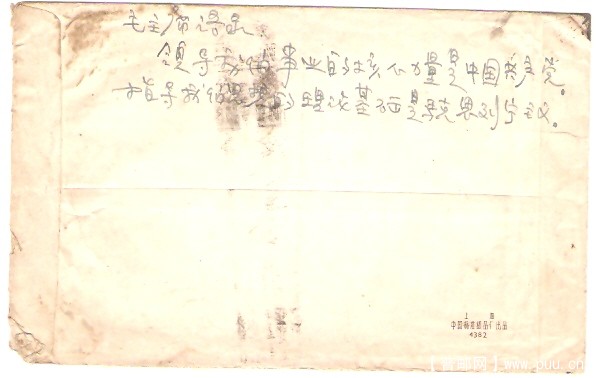 毛主席语录:
领导我们事业的核心力量是中国共产党。
指导我们思想的理论基础是马克思列宁主义。
上海
中国标准纸品厂出品
4382
www.ouu.cn